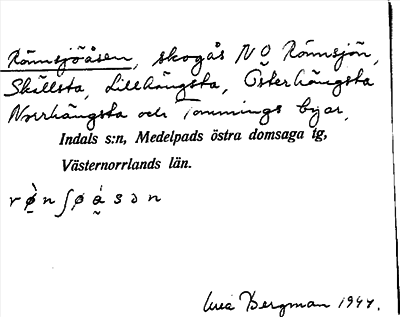 Rännsjöåsen, skogås NO Rännsjön,
Skällsta, Lillhångsta, Österhångsta
Norrhångsta och Tommings byar,
Indals s:n, Medelpads östra domsaga tg,
Västernorrlands län.
Bergman 1947.